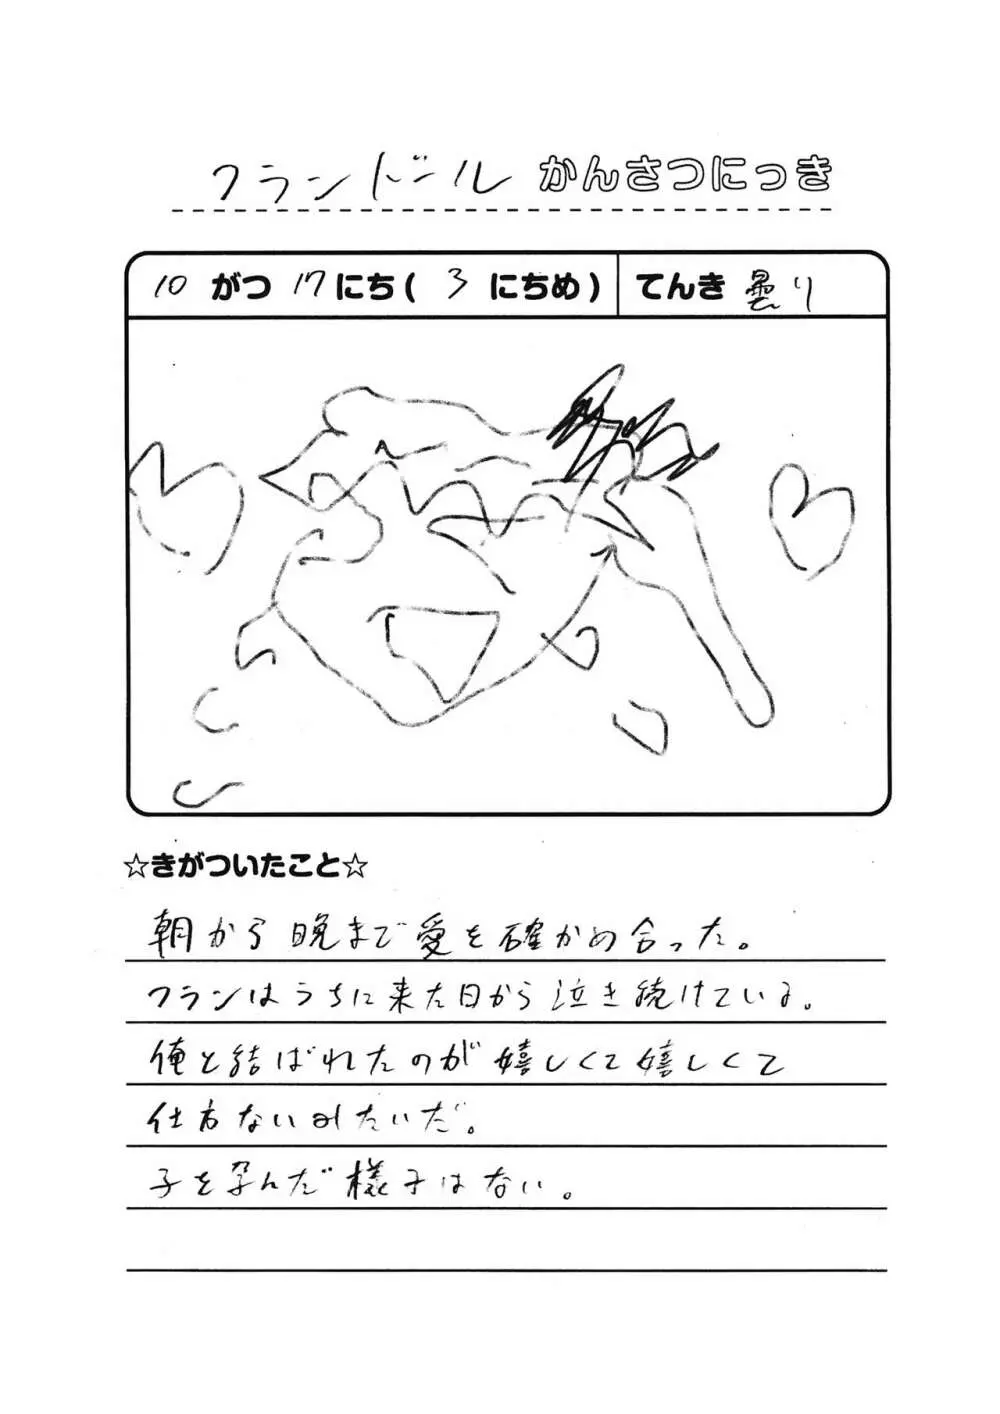 フランドール かんさつにっき
10 がつ 17 にち( 3 にちめ) てんき 曇り
☆きがついたこと☆
朝から晩まで愛を確かめ合った。
フランはうちに来た日から泣き続けている。
俺と結ばれたのが嬉しくて嬉しくて
仕方ないみたいだ。
子を孕んだ様子はない。